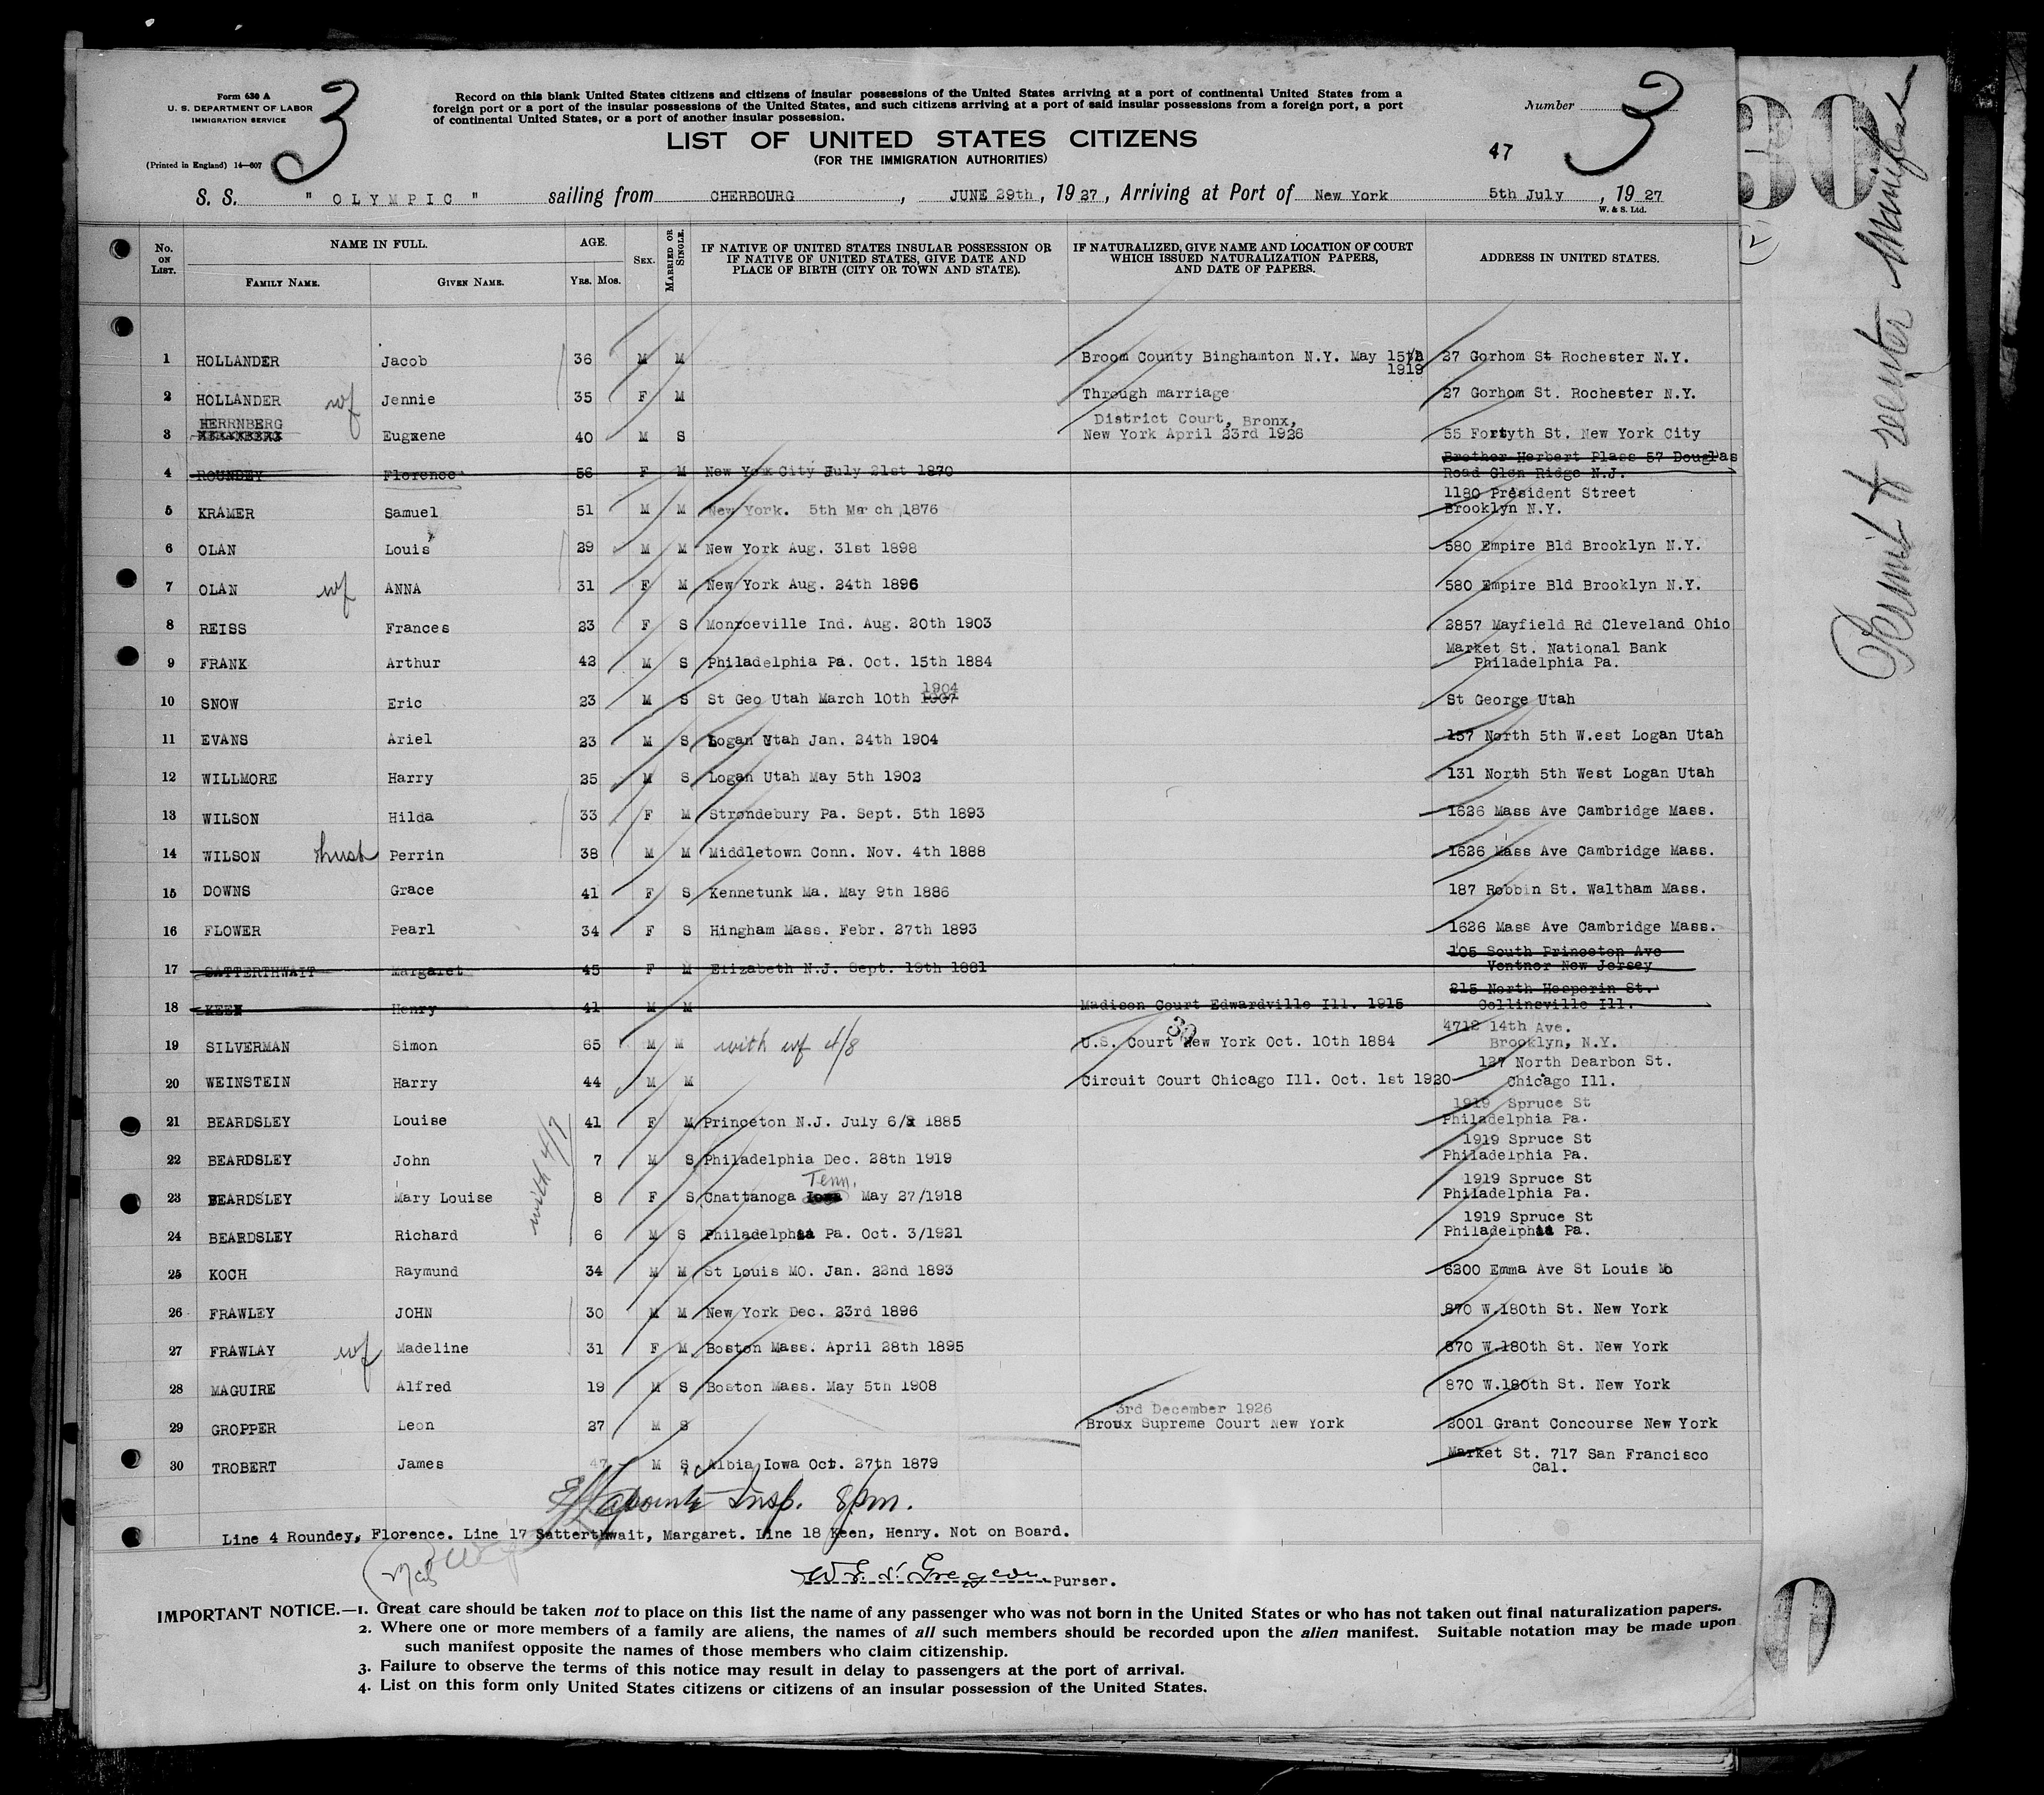 Form 630 A
U. S. DEPARTMENT OF LABOR
IMMIGRATION SERVICE
(Printed in England) 14—607
3
Record on this blank United States citizens and citizens of insular possessions of the United States arriving at a port of continental United States from a
foreign port or a port of the insular possessions of the United States, and such citizens arriving at a port of said insular possessions from a foreign port, a port
of continental United States, or a port of another insular possession.
Number 3
LIST OF UNITED STATES CITIZENS
(FOR THE IMMIGRATION AUTHORITIES)
47
S. S. "OLYMPIC" sailing from CHERBOURG, JUNE 29th, 1927, Arriving at Port of New York 5th July, 1927
W. & S. Ltd.
No. ON LIST. NAME IN FULL. FAMILY NAME. GIVEN NAME. AGE. Yrs. Mos. SEX. MARRIED OR SINGLE. IF NATIVE OF UNITED STATES INSULAR POSSESSION OR IF NATIVE OF UNITED STATES, GIVE DATE AND PLACE OF BIRTH (CITY OR TOWN AND STATE). IF NATURALIZED, GIVE NAME AND LOCATION OF COURT WHICH ISSUED NATURALIZATION PAPERS, AND DATE OF PAPERS. ADDRESS IN UNITED STATES.
1 HOLLANDER Jacob 36 M M Broom County Binghamton N.Y. May 15th 1919 27 Gorhom St Rochester N.Y.
2 HOLLANDER wf Jennie 35 F M Through marriage 27 Gorhom St. Rochester N.Y.
3 HERRNBERG Eugxene 40 M S District Court, Bronx, New York April 23rd 1926 55 Forsyth St. New York City
4 ROUNDEY Florence 56 F M New York City July 21st 1870 Brother Herbert Plass 57 Douglas Road Glen Ridge N.J.
5 KRAMER Samuel 51 M M New York. 5th March 1876 1180 President Street Brooklyn N.Y.
6 OLAN Louis 29 M M New York Aug. 31st 1898 580 Empire Bld Brooklyn N.Y.
7 OLAN wf ANNA 31 F M New York Aug. 24th 1896 580 Empire Bld Brooklyn N.Y.
8 REISS Frances 23 F S Monroeville Ind. Aug. 20th 1903 2857 Mayfield Rd Cleveland Ohio
9 FRANK Arthur 42 M S Philadelphia Pa. Oct. 15th 1884 Market St. National Bank Philadelphia Pa.
10 SNOW Eric 23 M S St Geo Utah March 10th 1907 1904 St George Utah
11 EVANS Ariel 23 M S Logan Utah Jan. 24th 1904 157 North 5th W.est Logan Utah
12 WILLMORE Harry 25 M S Logan Utah May 5th 1902 131 North 5th West Logan Utah
13 WILSON Hilda 33 F M Strondebury Pa. Sept. 5th 1893 1626 Mass Ave Cambridge Mass.
14 WILSON husb Perrin 38 M M Middletown Conn. Nov. 4th 1888 1626 Mass Ave Cambridge Mass.
15 DOWNS Grace 41 F S Kennetunk Ma. May 9th 1886 187 Robbin St. Waltham Mass.
16 FLOWER Pearl 34 F S Hingham Mass. Febr. 27th 1893 1626 Mass Ave Cambridge Mass.
17 SATTERTHWAIT Margaret 45 F M Elizabeth N.J. Sept. 19th 1881 105 South Princeton Ave Ventnor New Jersey
18 KEEN Henry 41 M M Madison Court Edwardville Ill. 1915 215 North Hesperin St. Collinsville Ill.
19 SILVERMAN Simon 65 M M with wf 4/8 U.S. Court New York Oct. 10th 1884 30 4712 14th Ave. Brooklyn, N.Y.
20 WEINSTEIN Harry 44 M M Circuit Court Chicago Ill. Oct. 1st 1920 127 North Dearbon St. Chicago Ill.
21 BEARDSLEY Louise 41 F M Princeton N.J. July 6/ 1885 1919 Spruce St Philadelphia Pa.
22 BEARDSLEY John 7 M S Philadelphia Dec. 28th 1919 1919 Spruce St Philadelphia Pa.
with 4/7
23 BEARDSLEY Mary Louise 8 F S Chattanoga Iowa Tenn. May 27/1918 1919 Spruce St Philadelphia Pa.
24 BEARDSLEY Richard 6 M S Philadelphia Pa. Oct. 3/1921 1919 Spruce St Philadelphia Pa.
25 KOCH Raymund 34 M M St Louis MO. Jan. 22nd 1893 6200 Emma Ave St Louis Mo
26 FRAWLEY JOHN 30 M M New York Dec. 23rd 1896 870 W.180th St. New York
27 FRAWLAY wf Madeline 31 F M Boston Mass. April 28th 1895 870 W.180th St. New York
28 MAGUIRE Alfred 19 M S Boston Mass. May 5th 1908 870 W.180th St. New York
29 GROPPER Leon 27 M S 3rd December 1926 Broux Supreme Court New York 2001 Grant Concourse New York
30 TROBERT James 47 M S Albia Iowa Oct. 27th 1879 Market St. 717 San Francisco Cal.
Insp. 8pm.
Line 4 Roundey, Florence. Line 17 Satterthwait, Margaret. Line 18 Keen, Henry. Not on Board.
Purser.
IMPORTANT NOTICE.—1. Great care should be taken not to place on this list the name of any passenger who was not born in the United States or who has not taken out final naturalization papers.
2. Where one or more members of a family are aliens, the names of all such members should be recorded upon the alien manifest. Suitable notation may be made upon
such manifest opposite the names of those members who claim citizenship.
3. Failure to observe the terms of this notice may result in delay to passengers at the port of arrival.
4. List on this form only United States citizens or citizens of an insular possession of the United States.
30
Permit to reenter Manifest